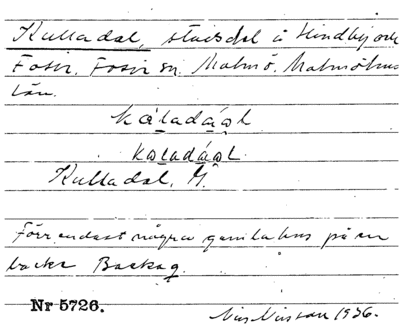 Kulladal, stadsdel å Hindby och
Fosie. Fosie sn. Malmö. Malmöhus
län.
kåladáɑl
kɷladáɑl.
Kulladal, M.
Förr endast några gamla hus på en
backe Backa
Nr 5726.
Nils Nilsson 1936.